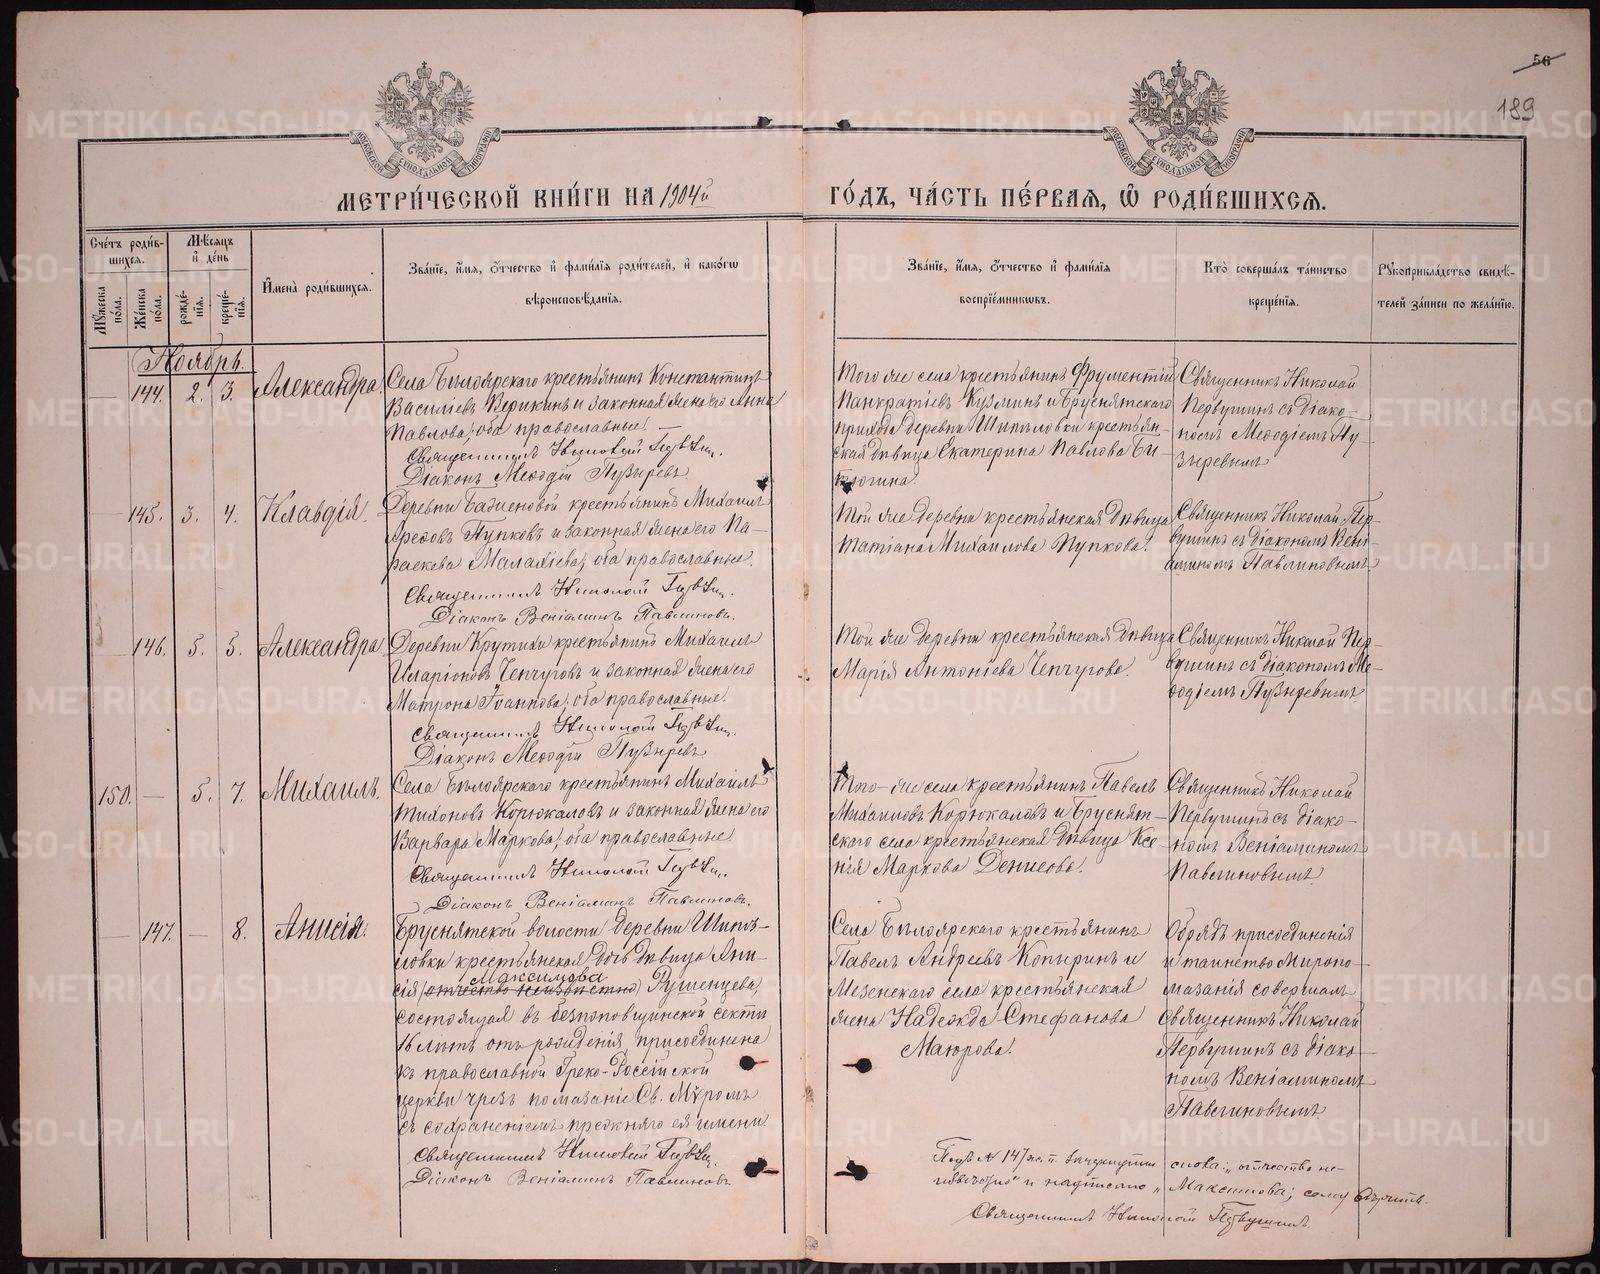 56
189
МЕТРИ́ЧЕСКОЙ КНИ́ГИ НА 1904й
ГО́ДЪ, ЧА́СТЬ ПЕ́РВАЯ, Ѡ РОДИ́ВШИХСЯ.
Сче́тъ роди́вшихся.
Му́жеска по́ла.
Же́нска по́ла.
Мѣ́сяцъ и де́нь
рожде́нія.
креще́нія.
Имена̀ роди́вшихся.
Зва́ніе, и́мя, о́тчество и фами́лія роди́телей, и како́гѡ
вѣроисповѣ́данія.
Зва́ніе, и́мя, о́тчество и фами́лія
воспріе́мниковъ.
Кто̀ соверша́лъ та́инство
креще́нія.
Рукоприкла́дство свидѣ́телей за́писи по жела́нію.
Ноябрь.
144. 2. 3. Александра.
Села Бѣлоярскаго крестьянинъ Константинъ
Василіевъ и законная жена его Анна
Павлова, оба православные.
Священникъ Николай Первушинъ.
Діаконъ Меѳодій Пузыревъ.
Того же села крестьянинъ Фрументій
Панкратіевъ Кузминъ и Бруснятскаго
прихода деревни Шипѣловки крестьян-
ская дѣвица Екатерина Павлова
Священникъ Николай
Первушинъ съ діако-
номъ Меѳодіемъ Пу-
зыревымъ
145. 3. 4. Клавдія.
Деревни крестьянинъ Михаилъ
Пупковъ и законная жена его Па-
раскева Малахіева, оба православные.
Священникъ Николай Первушинъ.
Діаконъ Веніаминъ Павлиновъ.
Той же деревни крестьянская дѣвица
Татіана Михаилова Пупкова.
Священникъ Николай Пер-
вушинъ съ діакономъ Вені-
аминомъ Павлиновымъ
146. 5. 5. Александра
Деревни Крутихи крестьянинъ Михаилъ
Иларіоновъ Чепчуговъ и законная жена его
Матрона Іоаннова, оба православные.
Священникъ Николай Первушинъ.
Діаконъ Меѳодій Пузыревъ
Той же деревни крестьянская дѣвица
Марія Антоніева Чепчугова.
Священникъ Николай Пер-
вушинъ съ діакономъ Ме-
ѳодіемъ Пузыревымъ
150. — 5. 7. Михаилъ.
Села Бѣлоярскаго крестьянинъ Михаилъ
Тихоновъ Корюкаловъ и законная жена его
Варвара Маркова, оба православные.
Священникъ Николай Первушинъ.
Діаконъ Веніаминъ Павлиновъ.
Того-же села крестьянинъ Павелъ
Михаиловъ Корюкаловъ и Бруснят-
скаго села крестьянская дѣвица Ксе-
нія Маркова Денисова.
Священникъ Николай
Первушинъ съ діако-
номъ Веніаминомъ
Павлиновымъ
147. — 8. Анисія.
Бруснятской волости деревни Шипѣ-
ловки крестьянская дочь дѣвица Ани-
Максимова
сія (отчество неизвѣстно) Рушенцева,
состоящая въ безпоповщинской сектѣ
16 лѣтъ отъ рожденія, присоединена
къ православной Греко-Россійской
церкви чрезъ помазаніе Св. Мѵромъ
съ сохраненіемъ прежняго ея имени
Священникъ Николай Первушинъ.
Діаконъ Веніаминъ Павлиновъ
Села Бѣлоярскаго крестьянинъ
Павелъ Андреевъ Копыринъ и
Мезенскаго села крестьянская
жена Надежда Стефанова
Маюрова.
Обрядъ присоединенія
и таинство Мѵропо-
мазанія совершалъ
Священникъ Николай
Первушинъ съ діако-
номъ Веніаминомъ
Павлиновымъ
Подъ № 147 зачеркнутыя слова: „отчество не-
извѣстно“ и надписано „Максимова; сему вѣрить.
Священникъ Николай Первушинъ.
METRIKI.GASO-URAL.RU